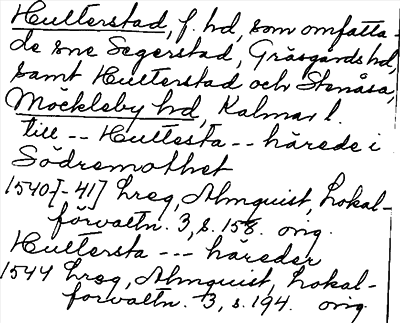 Hulterstad, f. hd, som omfatta-
de sne Segerstad, Gräsgårds hd,
samt Hulterstad och Stenåsa,
Möckleby hd, Kalmar l.
till -- Hultesta -- härede i
Södremothet
1540[-41] Lreg, Almquist, Lokal-
förvaltn. 3, s. 158. orig.
Hultersta --- häreder
1544 Lreg, Almquist, Lokal-
förvaltn. 3, s. 194. orig.